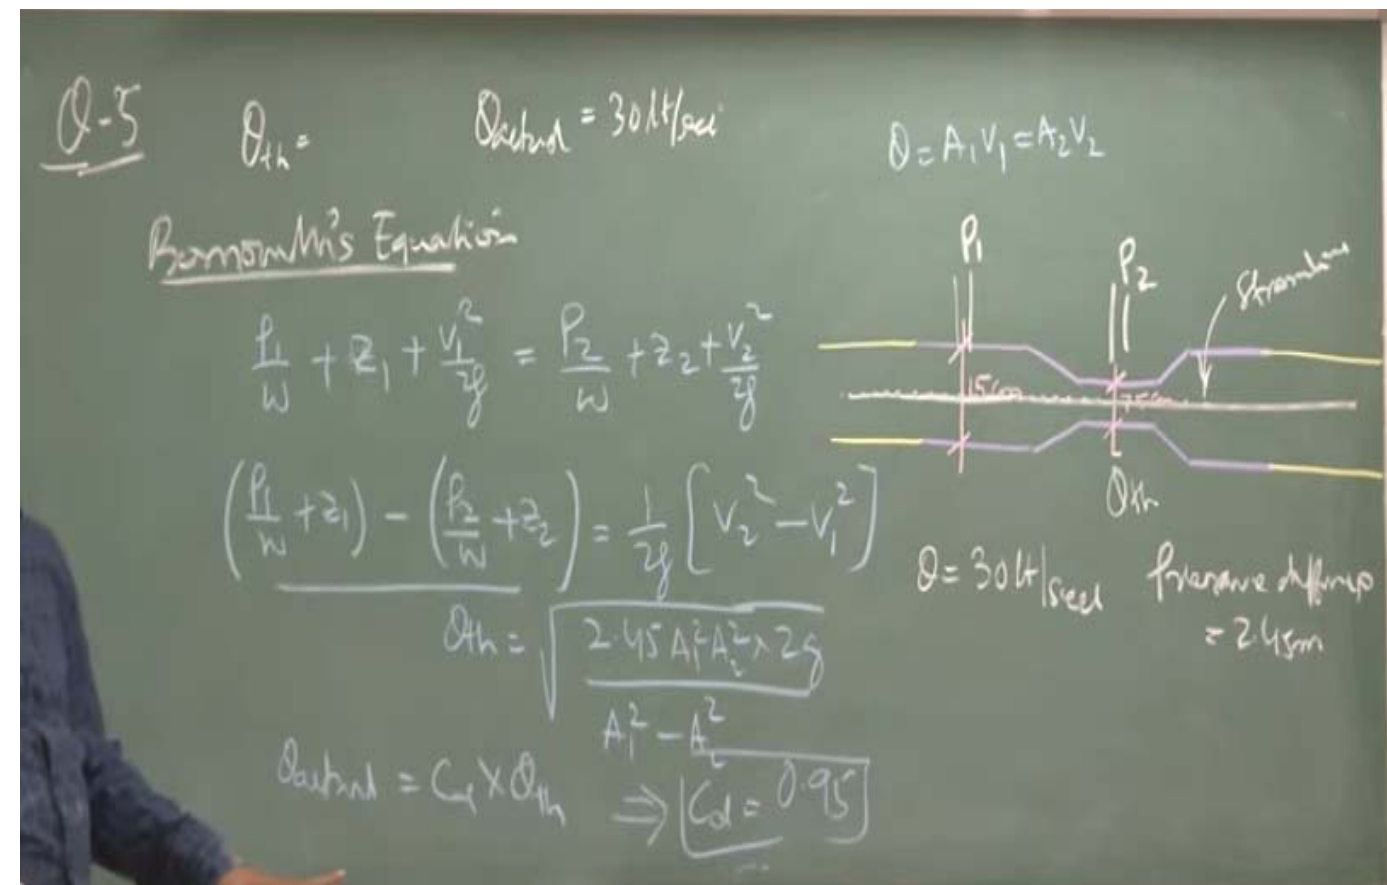 Q-5
Q_th =
Q_actual = 30 lt/sec
Q = A₁V₁ = A₂V₂
Bernoulli's Equation
P₁/w + z₁ + V₁²/2g = P₂/w + z₂ + V₂²/2g
(P₁/w + z₁) - (P₂/w + z₂) = 1/2g [V₂² - V₁²]
Q_th = √(2.45 A₁²A₂² × 2g / A₁² - A₂²)
Q_actual = C_d × Q_th ⇒ C_d = 0.95
P₁
P₂
Streamline
15cm
7.5cm
Q_th
Q = 30 lt/sec
Pressure difference
= 2.45m